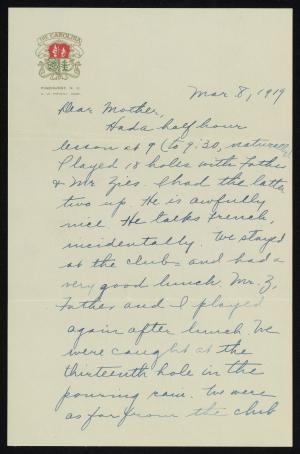 THE CAROLINA
PINEHURST, N. C.
Mar. 8, 1919
Dear Mother,
Had a half hour
lesson at 9 (to 9:30, naturally)
I played 18 holes with Father
& Mr. Zies. I had the latter
two up. He is awfully
nice. He talks French,
incidentally. We stayed
at the club and had a
very good lunch. Mr. Z,
Father and I played
again after lunch. We
were caught at the
thirteenth hole in the
pouring rain. We were
as far from the club